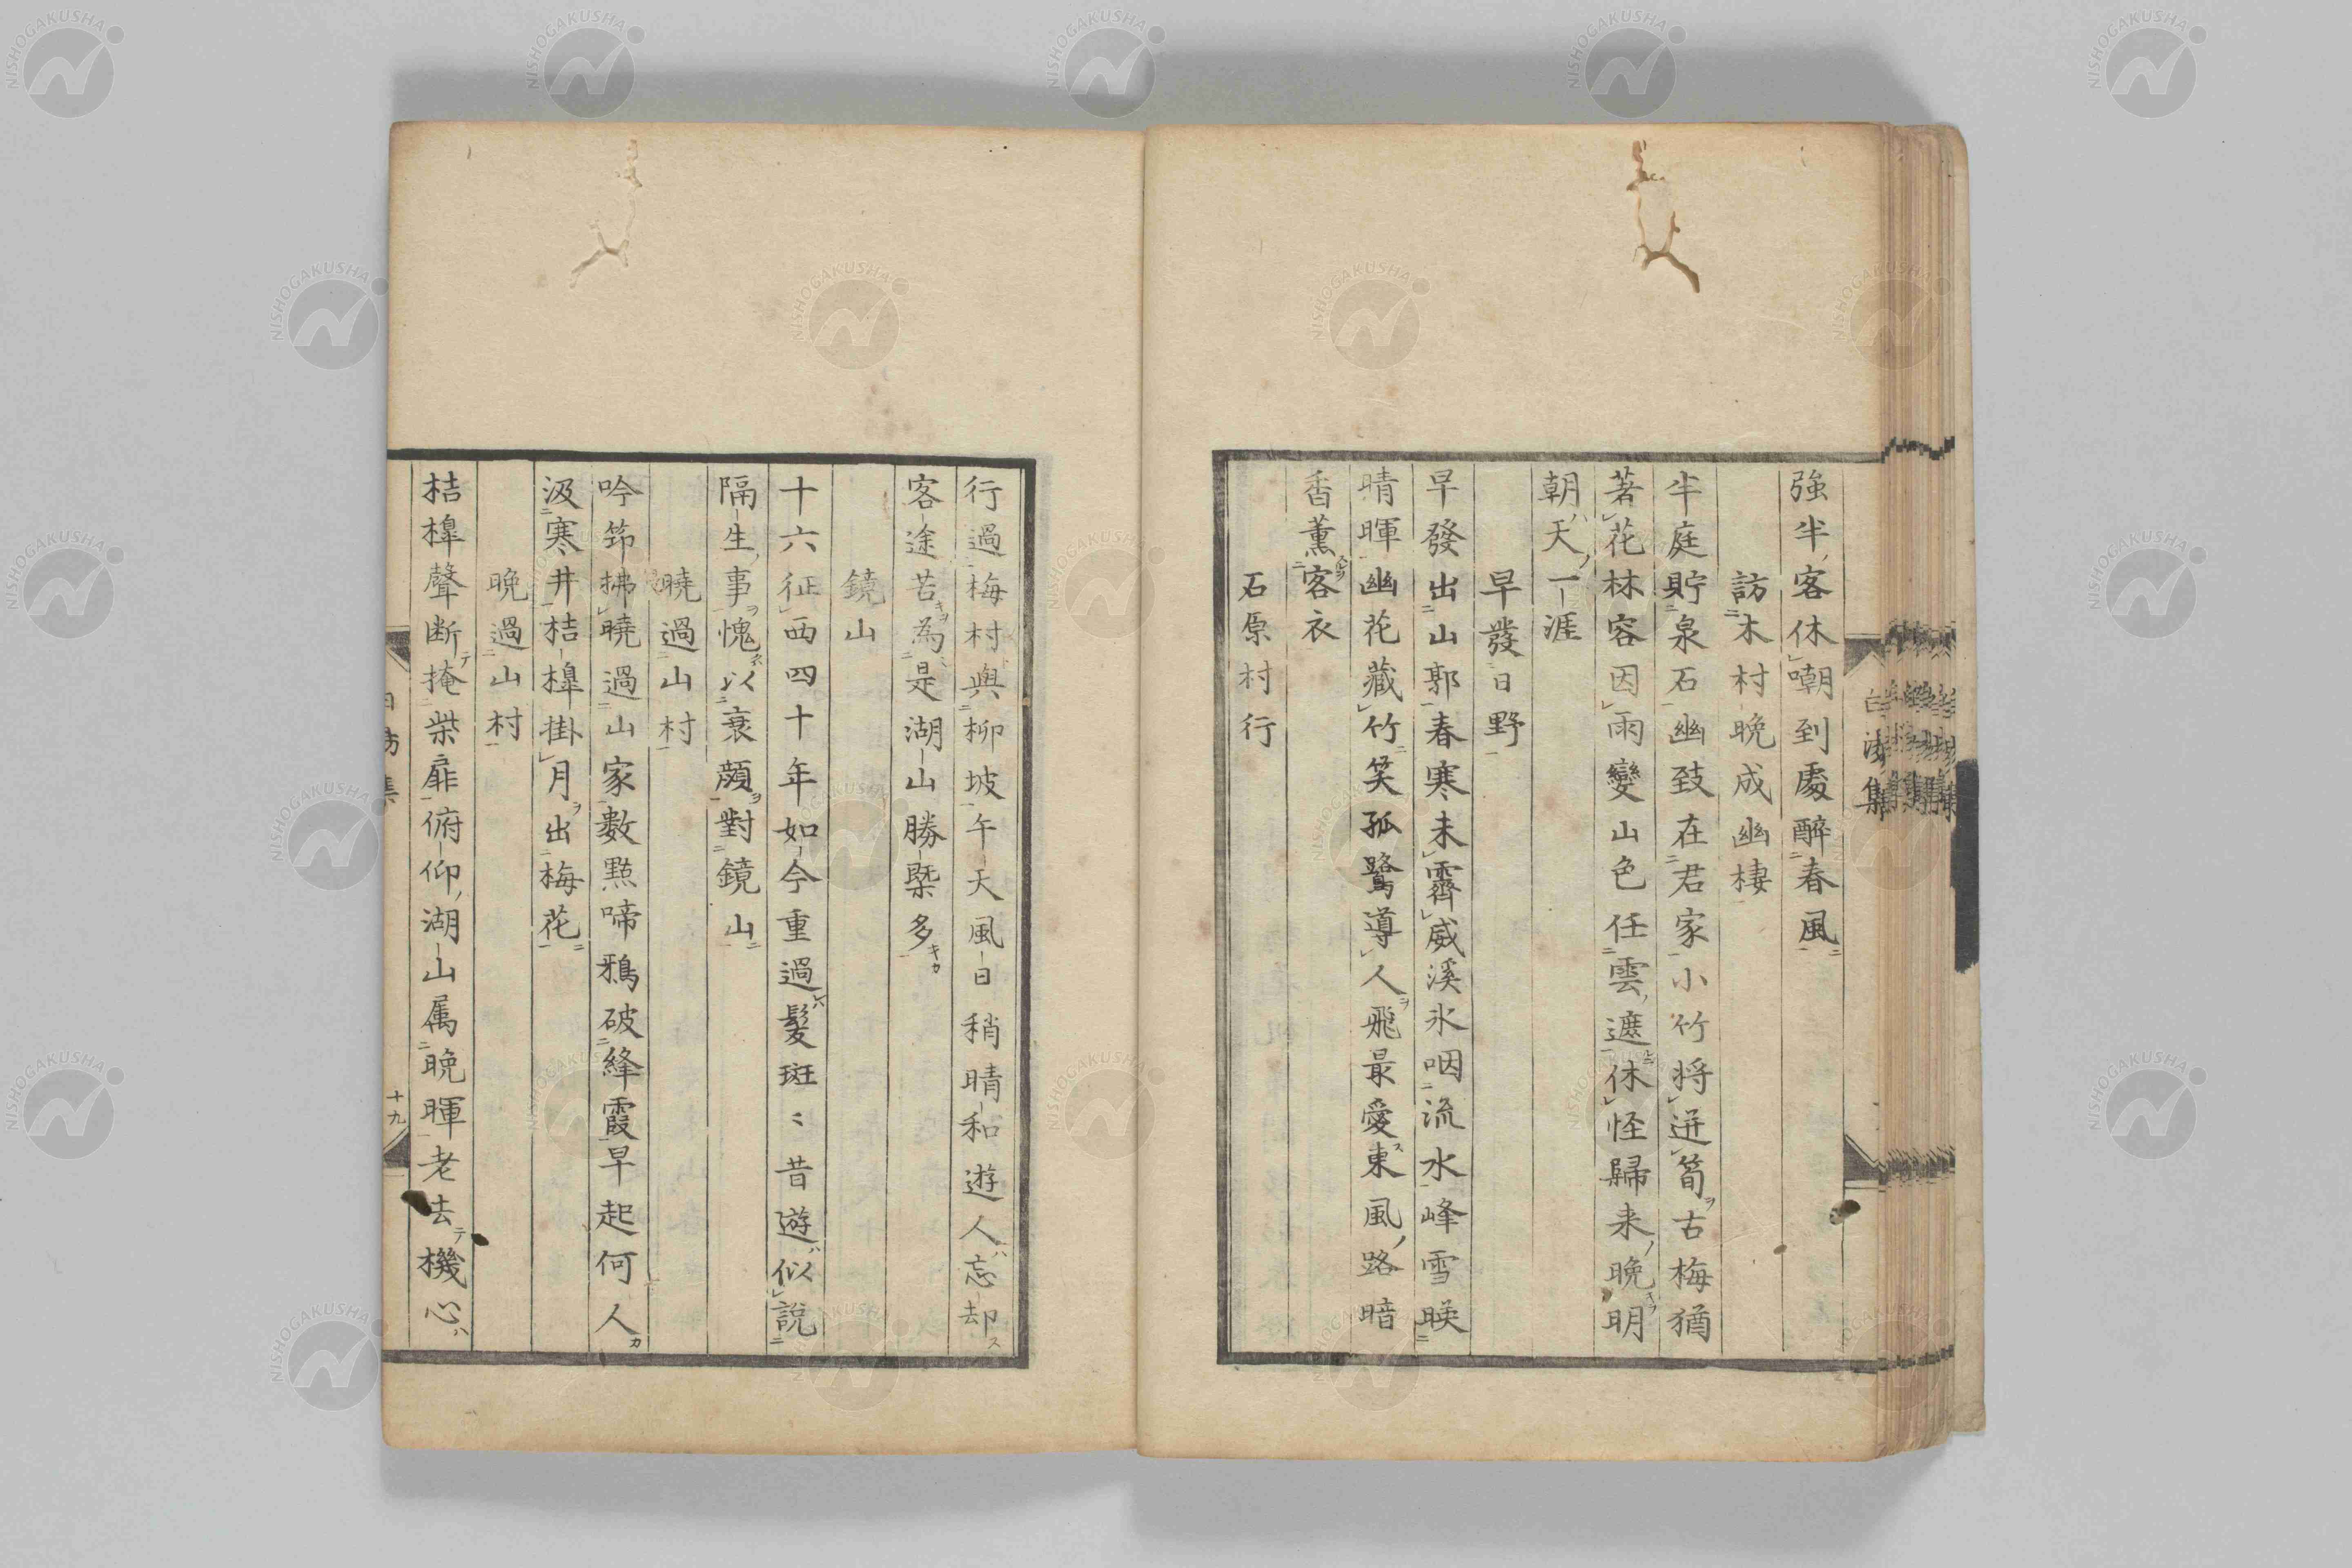 強半客休嘲到處醉春風
訪木村晚成幽棲
半庭貯泉石幽致在君家小竹將迸筍古梅猶
著花林容因雨變山色任雲遮休怪歸来晚明
朝天一涯
早發日野
早發出山郭春寒未霽威溪氷咽流水峰雪暎
晴暉幽花藏竹笑孤鷺導人飛最愛東風路暗
香薫客衣
石原村行
行過梅村與柳坡午天風日稍晴和遊人忘却
客途苦為是湖山勝槩多
鏡山
十六征西四十年如今重過髮斑〻昔遊似說
隔生事愧以衰顏對鏡山
曉過山村
吟筇拂曉過山家數點啼鴉破絳霞早起何人
汲寒井桔槹掛月出梅花
晩過山村
桔槹聲断掩柴扉俯仰湖山属晩暉老去機心
十九